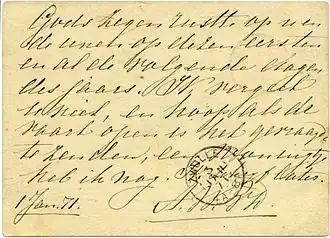 Gods zegen ruste op u en
de uwen op dezen eersten
en al de volgende dagen
des jaars. Ik vergeet
U niet, en hoop als de
vaart open is het gevraagde
te zenden, een
heb ik nog.
1 Jan. 71.